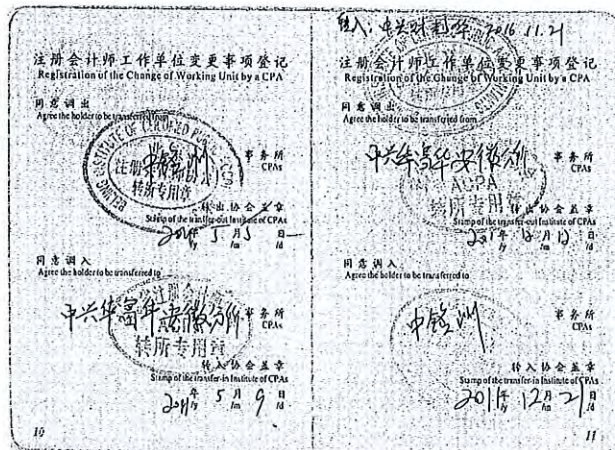 注册会计师工作单位变更事项登记
Registration of the Change of Working Unit by a CPA
同意调出
Agree the holder to be transferred from
BEIJING INSTITUTE OF CERTIFIED
事务所
CPAs
转所专用章
转出协会盖章
Stamp of the transfer-out Institute of CPAs
5月5日
/y /m /d
同意调入
Agree the holder to be transferred to
中兴华富华安徽分所
事务所
CPAs
转所专用章
转入协会盖章
Stamp of the transfer-in Institute of CPAs
2011年5月9日
/y /m /d
10
转入:中兴财光华 2016.11.21
注册会计师工作单位变更事项登记
Registration of the Change of Working Unit by a CPA
同意调出
Agree the holder to be transferred from
中兴华富华安徽分所
事务所
CPAs
转所专用章
转出协会盖章
Stamp of the transfer-out Institute of CPAs
2011年12月12日
/y /m /d
同意调入
Agree the holder to be transferred to
事务所
CPAs
转入协会盖章
Stamp of the transfer-in Institute of CPAs
2011年12月21日
/y /m /d
11